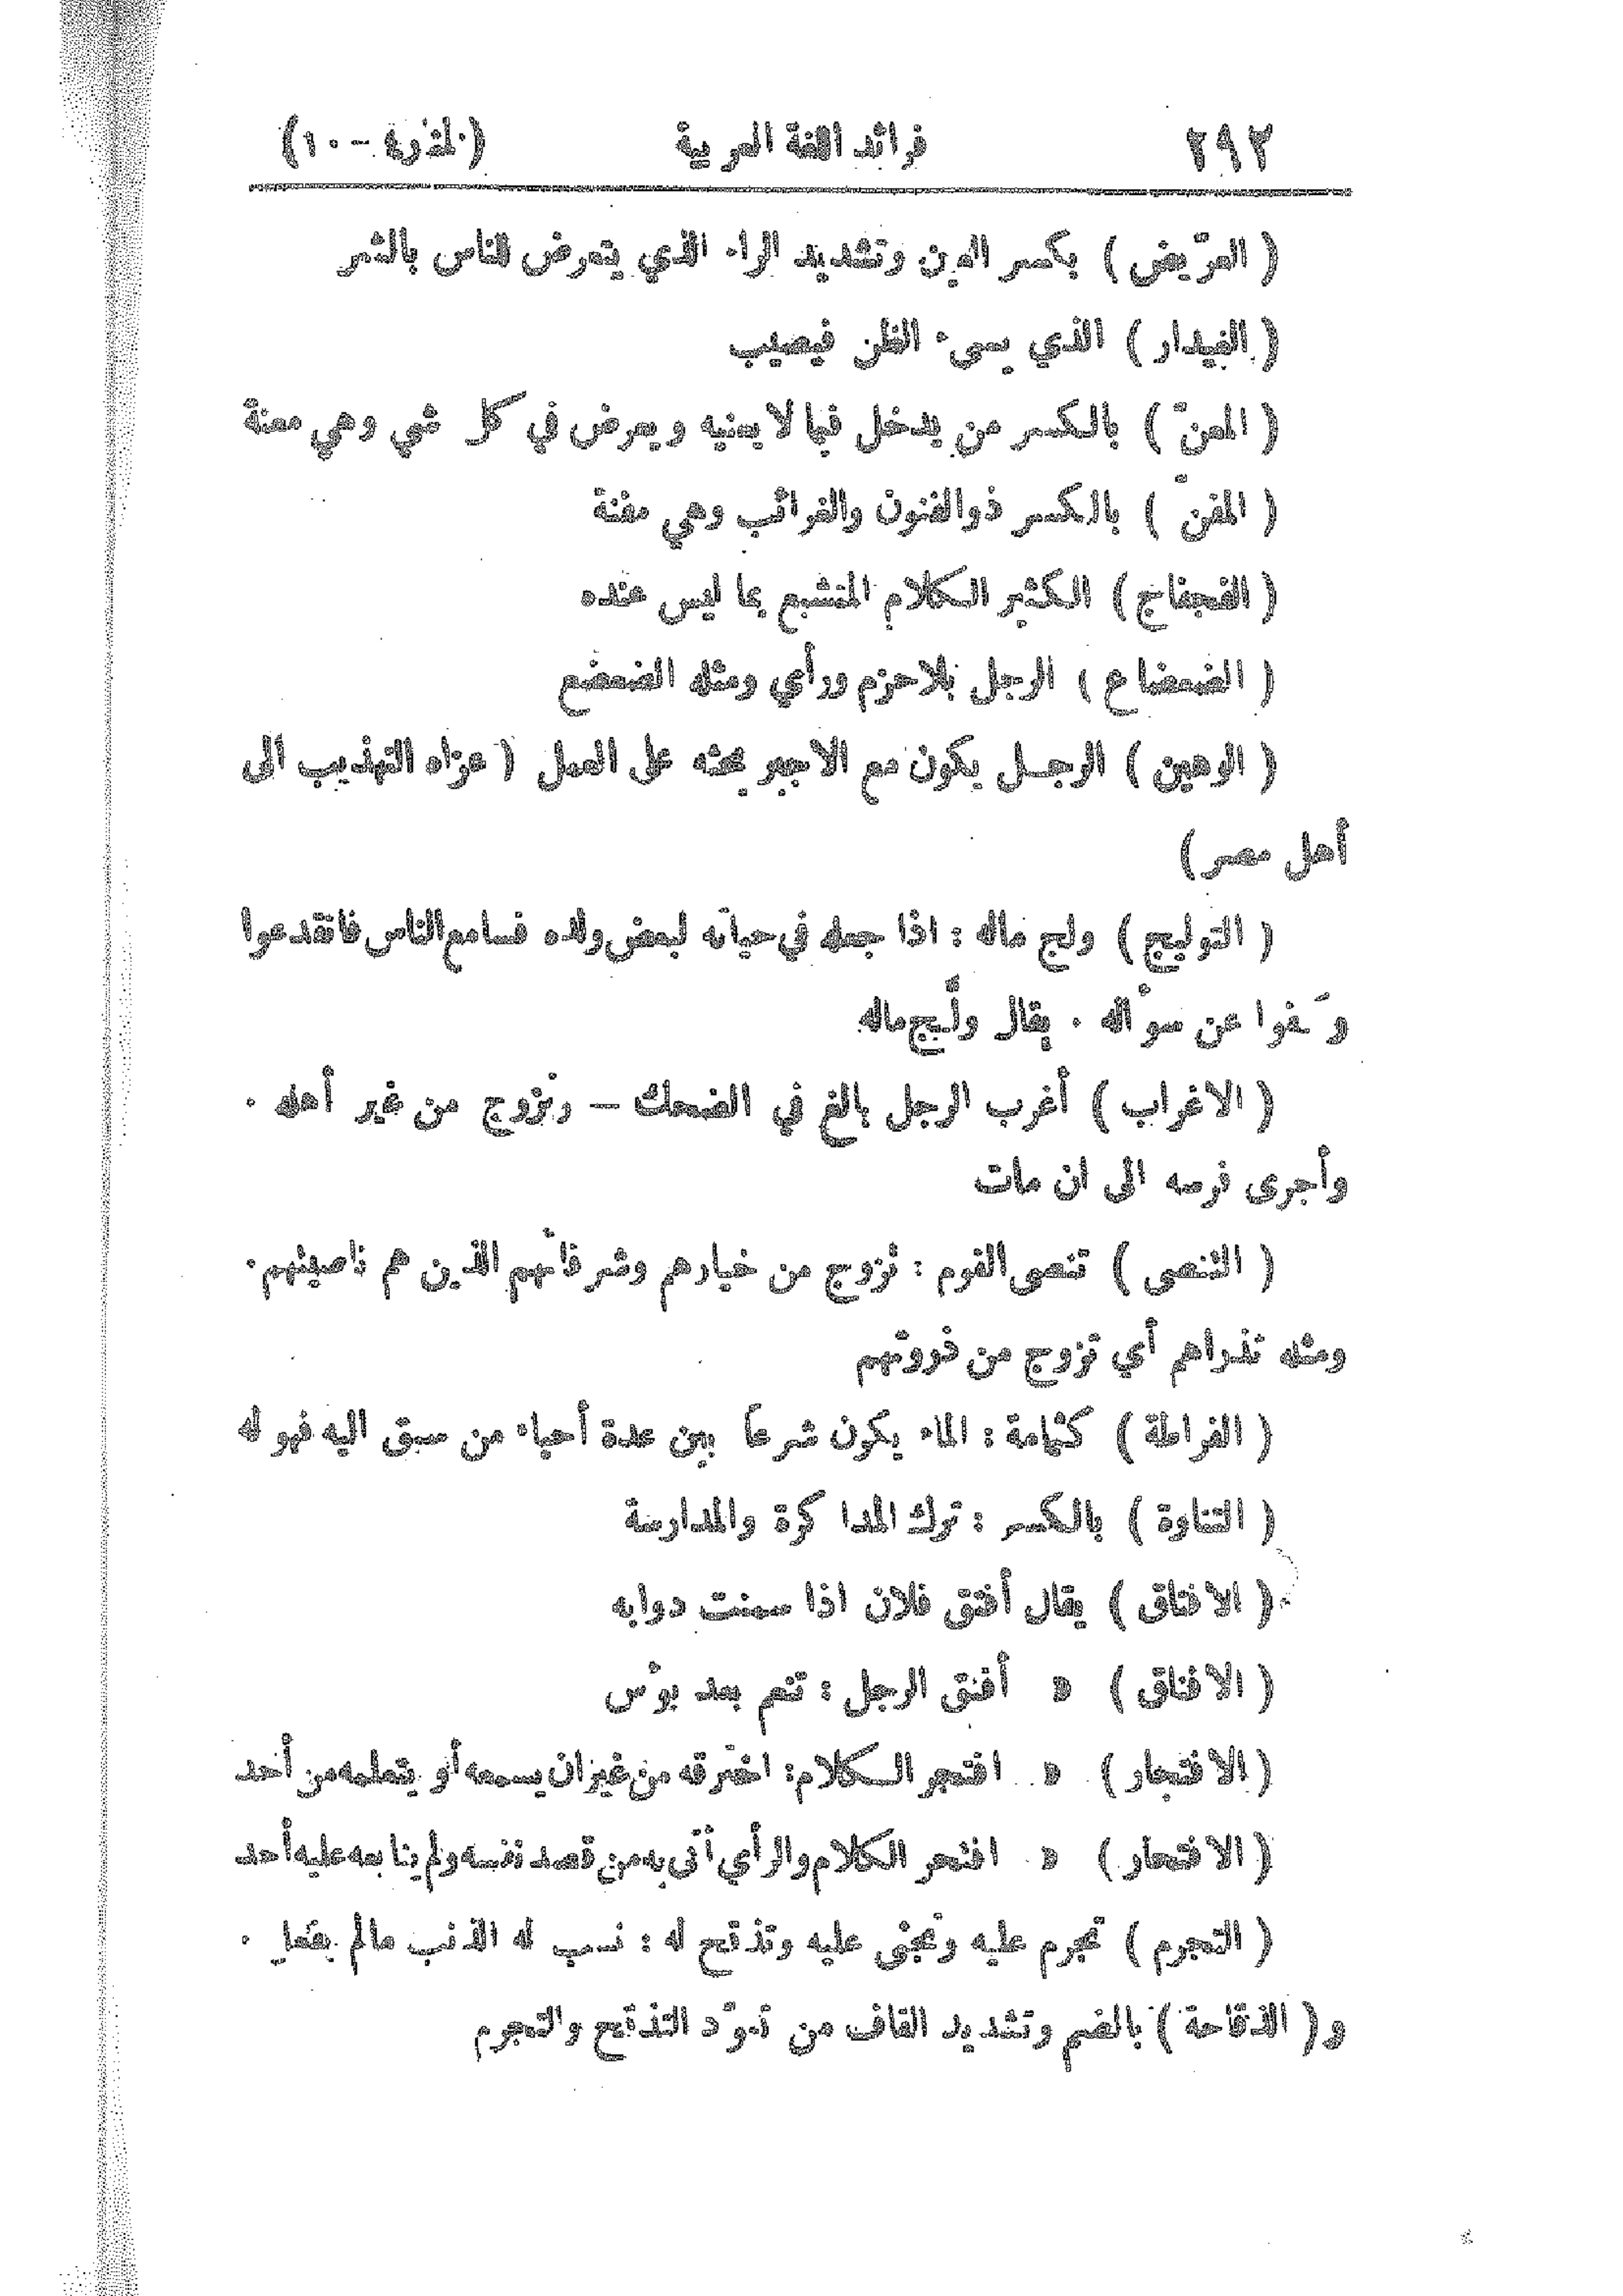 ٢٩٢ فرائد اللغة العربية ( - ١٠)
( العرّيض ) بكسر العين وتشديد الراء الذي يتعرض للناس بالشر
( الغيدار ) الذي يسيء الظن فيصيب
( المعنّ ) بالكسر من يدخل فيما لا يعنيه ويعرض في كل شي وهي معنة
( المفنّ ) بالكسر ذوالفنون والغرائب وهي مفنة
( الفجفاج ) الكثير الكلام المتشبع بما ليس عنده
( الضعضاع ) الرجل بلاحزم ورأي ومثله الضعضع
( الوهين ) الرجل يكون مع الاجير يحثه على العمل ( عزاه التهذيب الى
أهل مصر )
( التوليج ) ولج ماله : اذا جعله في حياته لبعض ولده فسامع الناس فانقدعوا
وعفوا عن سوآله . يقال ولَّج ماله
( الاغراب ) أغرب الرجل بالغ في الضحك — وتزوج من غير أهله .
وأجرى فرسه الى ان مات
( التنصي ) تنصى القوم : تزوج من خيارهم وشرفائهم الذين هم ناصيتهم .
ومثله تذراهم أي تزوج من ذروتهم
( الفراطة ) كثمامة : الماء يكون شرعاً بين عدة أحياء من سبق اليه فهو له
( التناوة ) بالكسر : ترك المذاكرة والمدارسة
( الافتاق ) يقال أفتق فلان اذا سمنت دوابه
( الافناق ) » أفنق الرجل : تنعم بعد بوْس
( الافتجار ) » افتجر الكلام : اخترقه من غير ان يسمعه أو يتعلمه من أحد
( الافتحار ) » افتحر الكلام والرأي أتى به من قصد نفسه ولم يتابعه عليه أحد
( التجرم ) تجرم عليه وتجنى عليه وتذقح له : نسب له الذنب مالم يفعل .
و( الذقاحة ) بالضم وتشديد القاف من تعوّد التذقح والتجرم